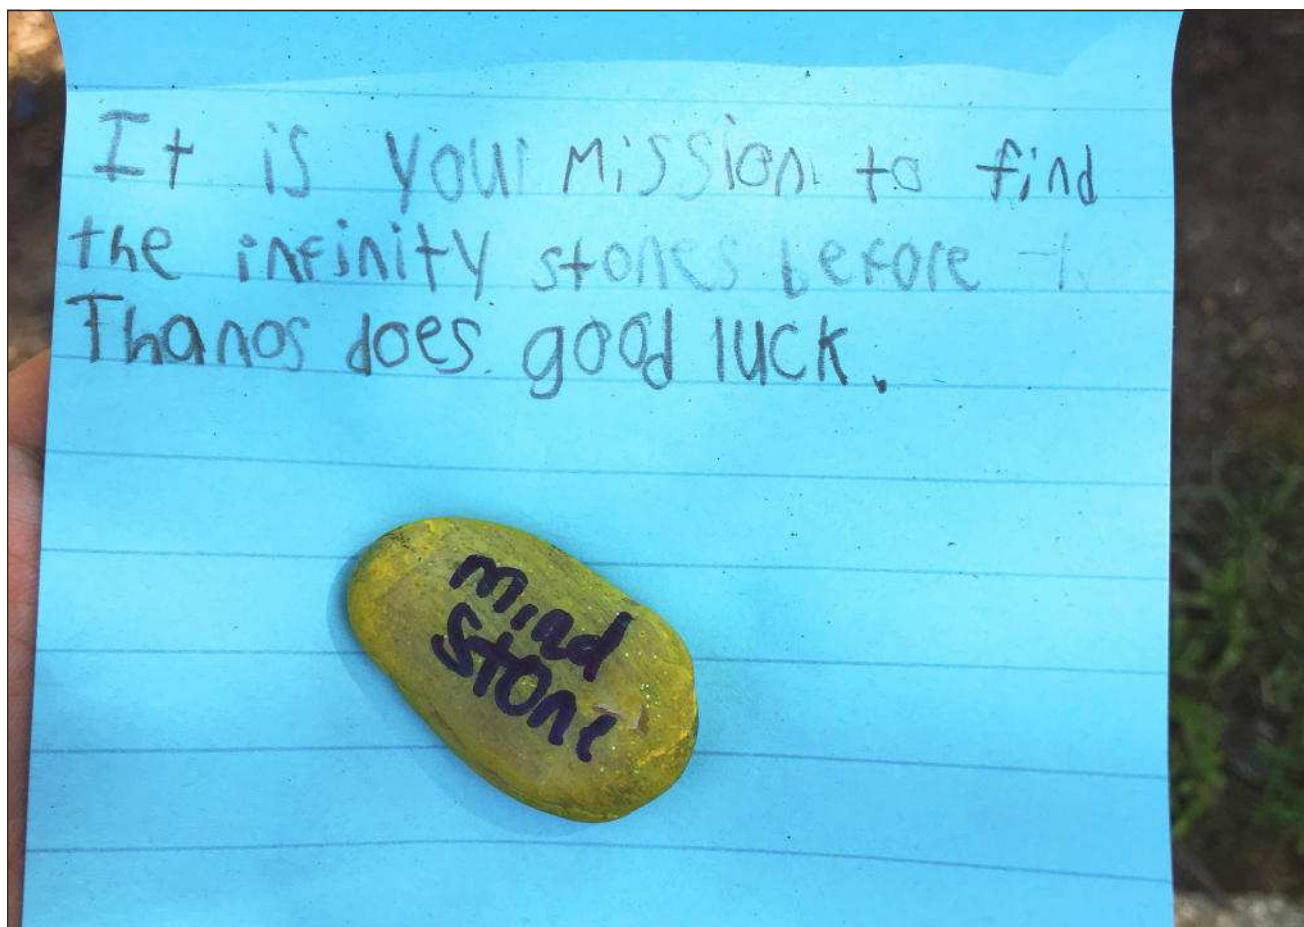 It is your mission to find
the infinity stones before
Thanos does. good luck.
Mind
Stone